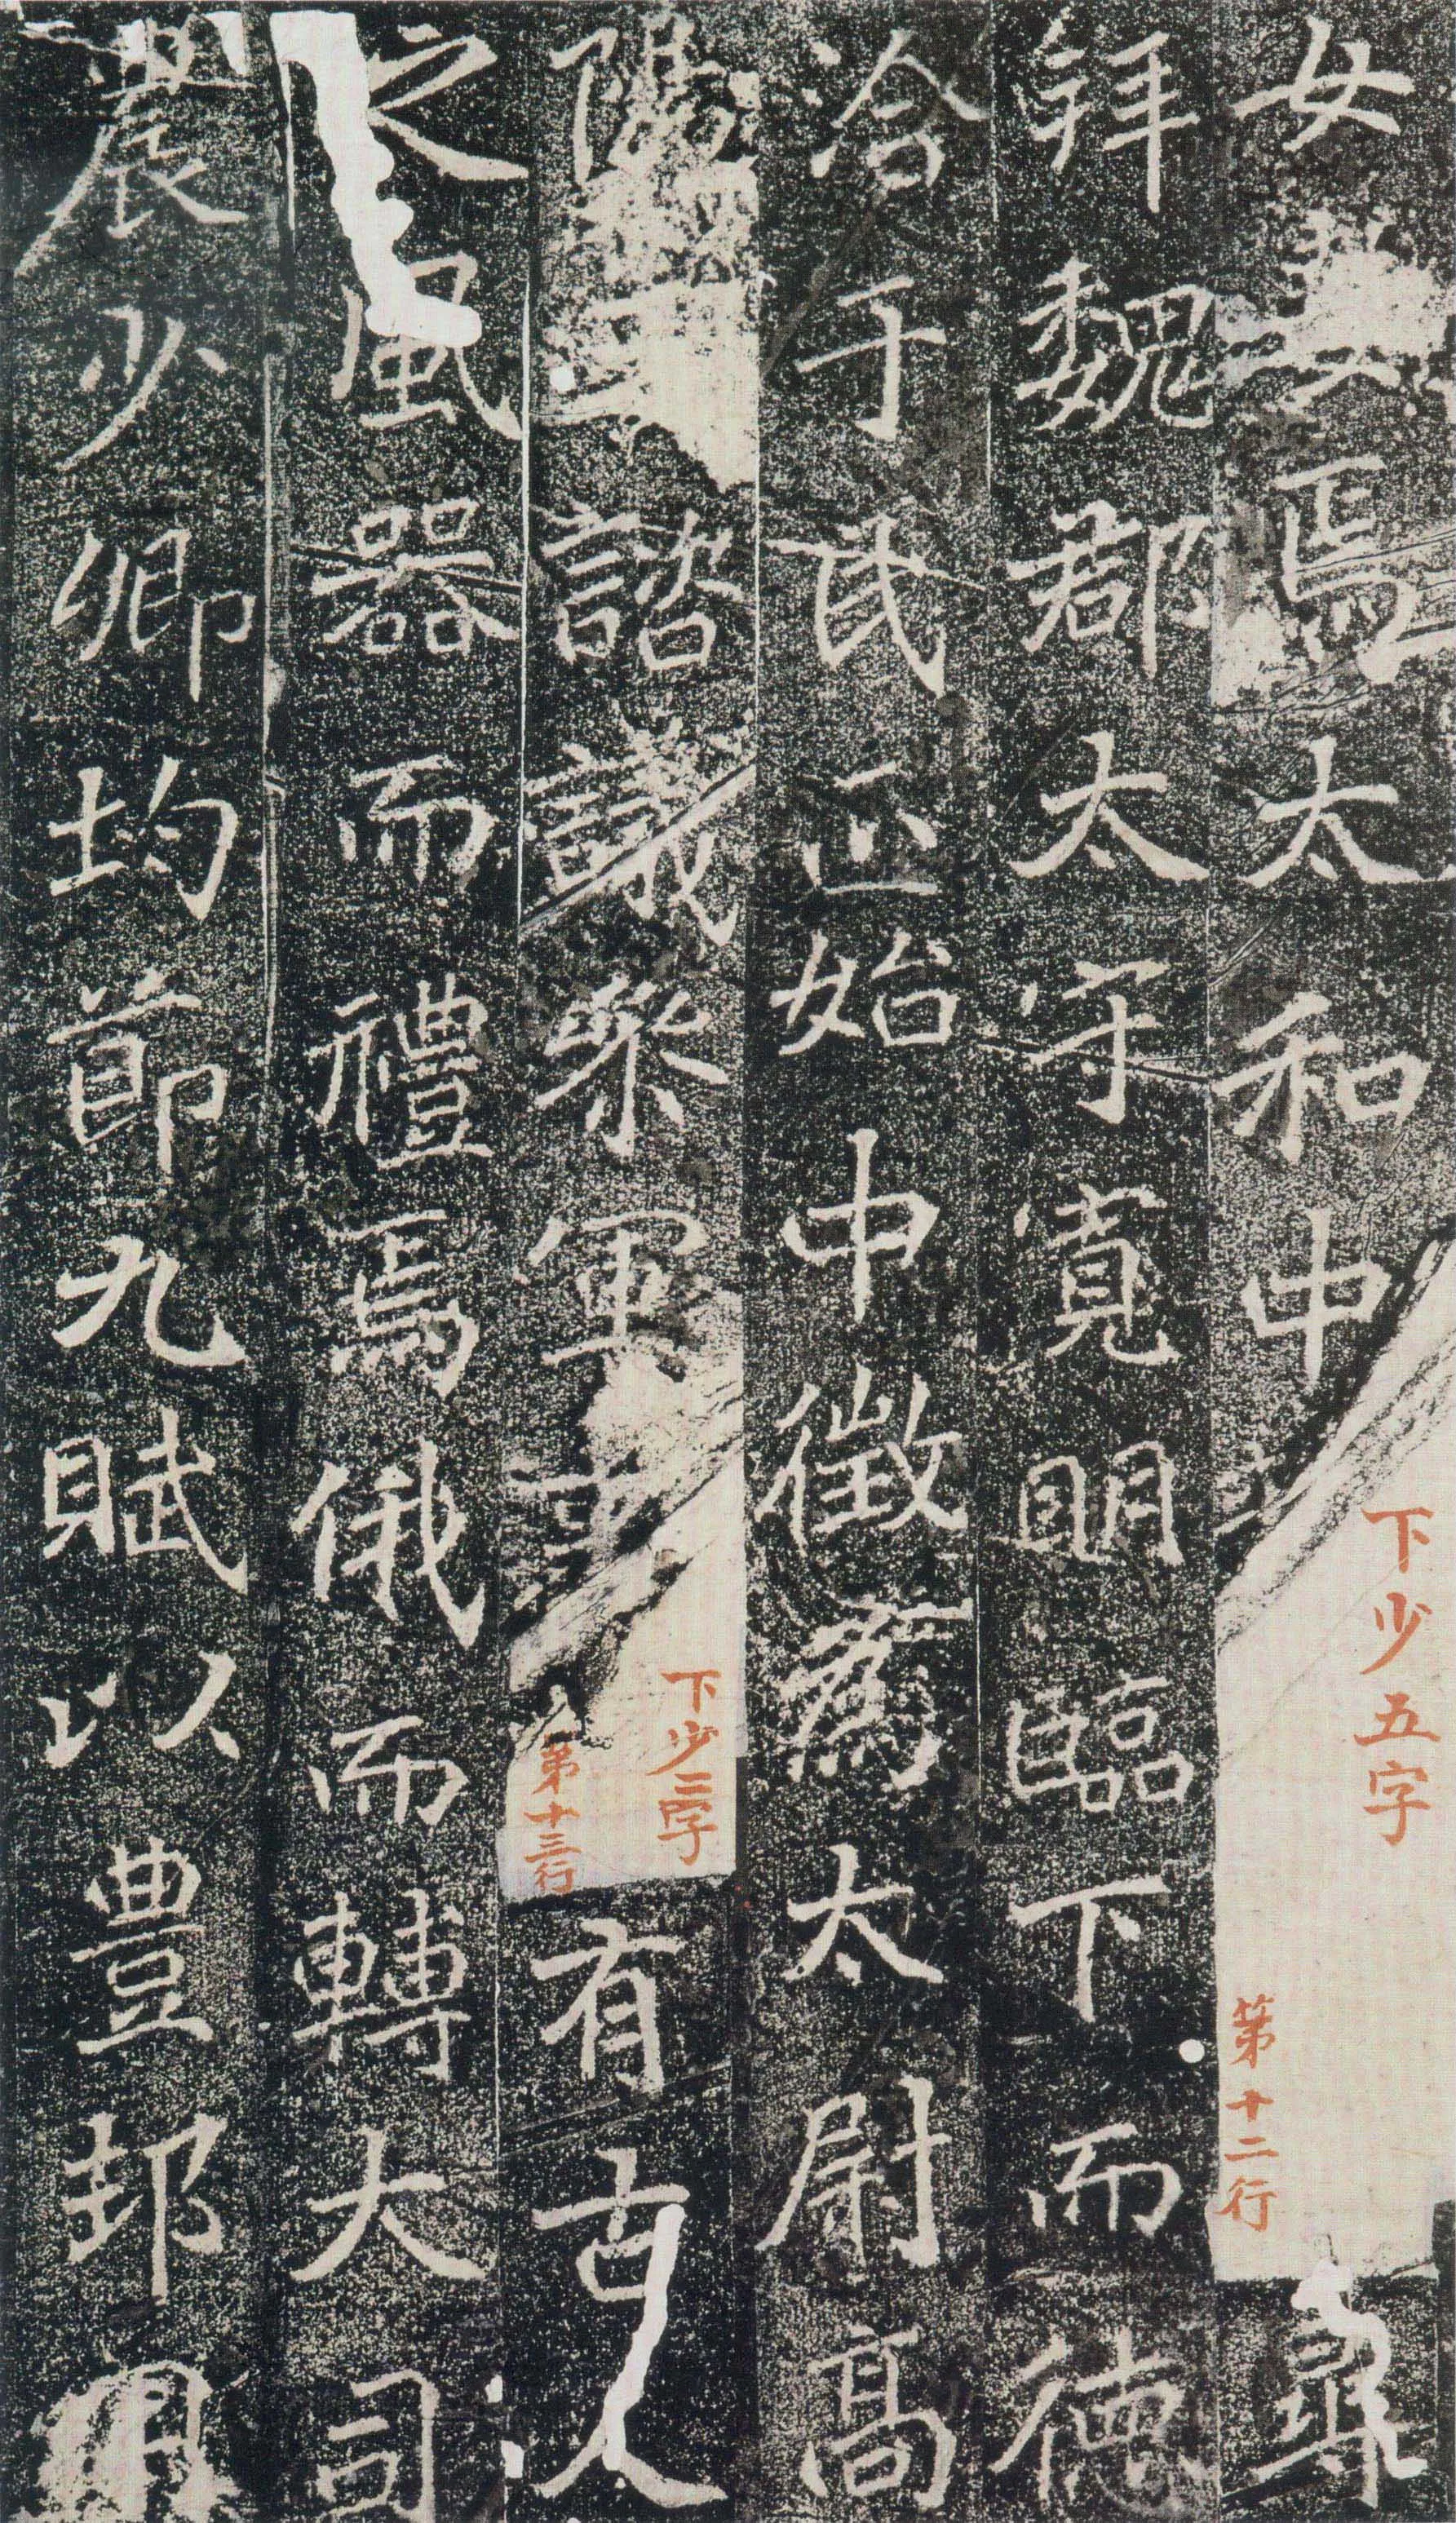 女焉太和中
下少五字
第十二行
尋
拜魏郡太守寬明臨下而德
洽于民正始中徵爲太尉高
陽王諮議參軍事
下少二字
第十三行
有古人
之風器而禮焉俄而轉大司
農少卿均節九賦以豊邦用